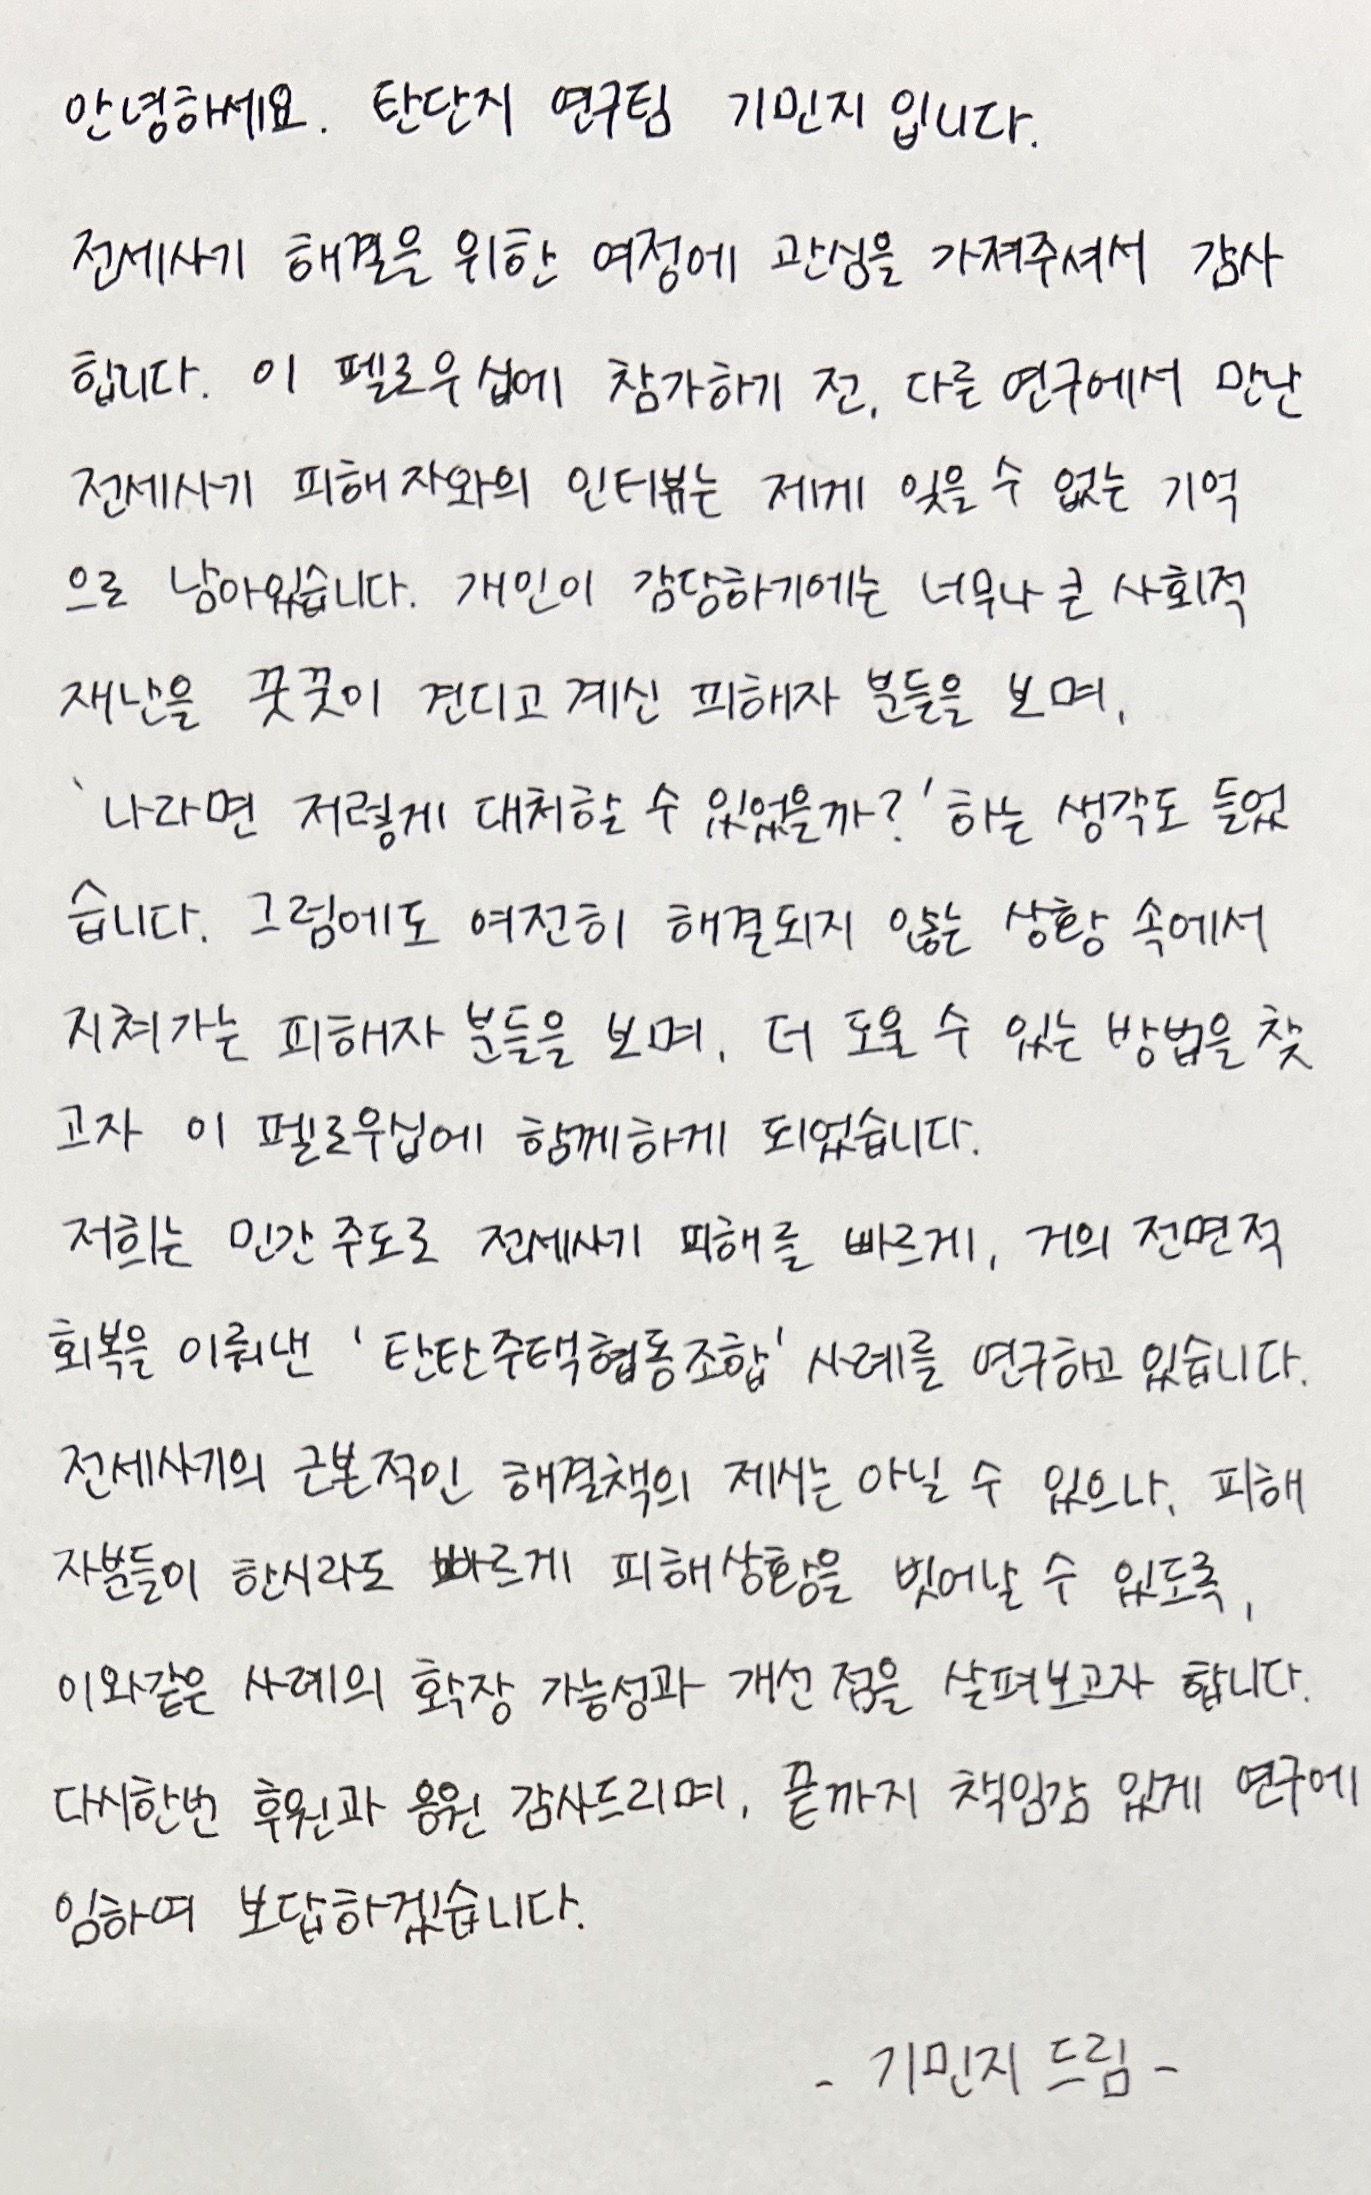 안녕하세요. 탄단지 연구팀 기민지 입니다.
전세사기 해결을 위한 여정에 관심을 가져주셔서 감사
합니다. 이 펠로우십에 참가하기 전, 다른 연구에서 만난
전세사기 피해자와의 인터뷰는 제게 잊을 수 없는 기억
으로 남아있습니다. 개인이 감당하기에는 너무나 큰 사회적
재난을 꿋꿋이 견디고 계신 피해자 분들을 보며,
'나라면 저렇게 대처할 수 있었을까?' 하는 생각도 들었
습니다. 그럼에도 여전히 해결되지 않는 상황 속에서
지쳐가는 피해자 분들을 보며, 더 도울 수 있는 방법을 찾
고자 이 펠로우십에 함께하게 되었습니다.
저희는 민간 주도로 전세사기 피해를 빠르게, 거의 전면적
회복을 이뤄낸 '탄탄주택협동조합' 사례를 연구하고 있습니다.
전세사기의 근본적인 해결책의 제시는 아닐 수 있으나, 피해
자분들이 한시라도 빠르게 피해상황을 벗어날 수 있도록,
이와같은 사례의 확장 가능성과 개선점을 살펴보고자 합니다.
다시한번 후원과 응원 감사드리며, 끝까지 책임감 있게 연구에
임하여 보답하겠습니다.
- 기민지 드림 -